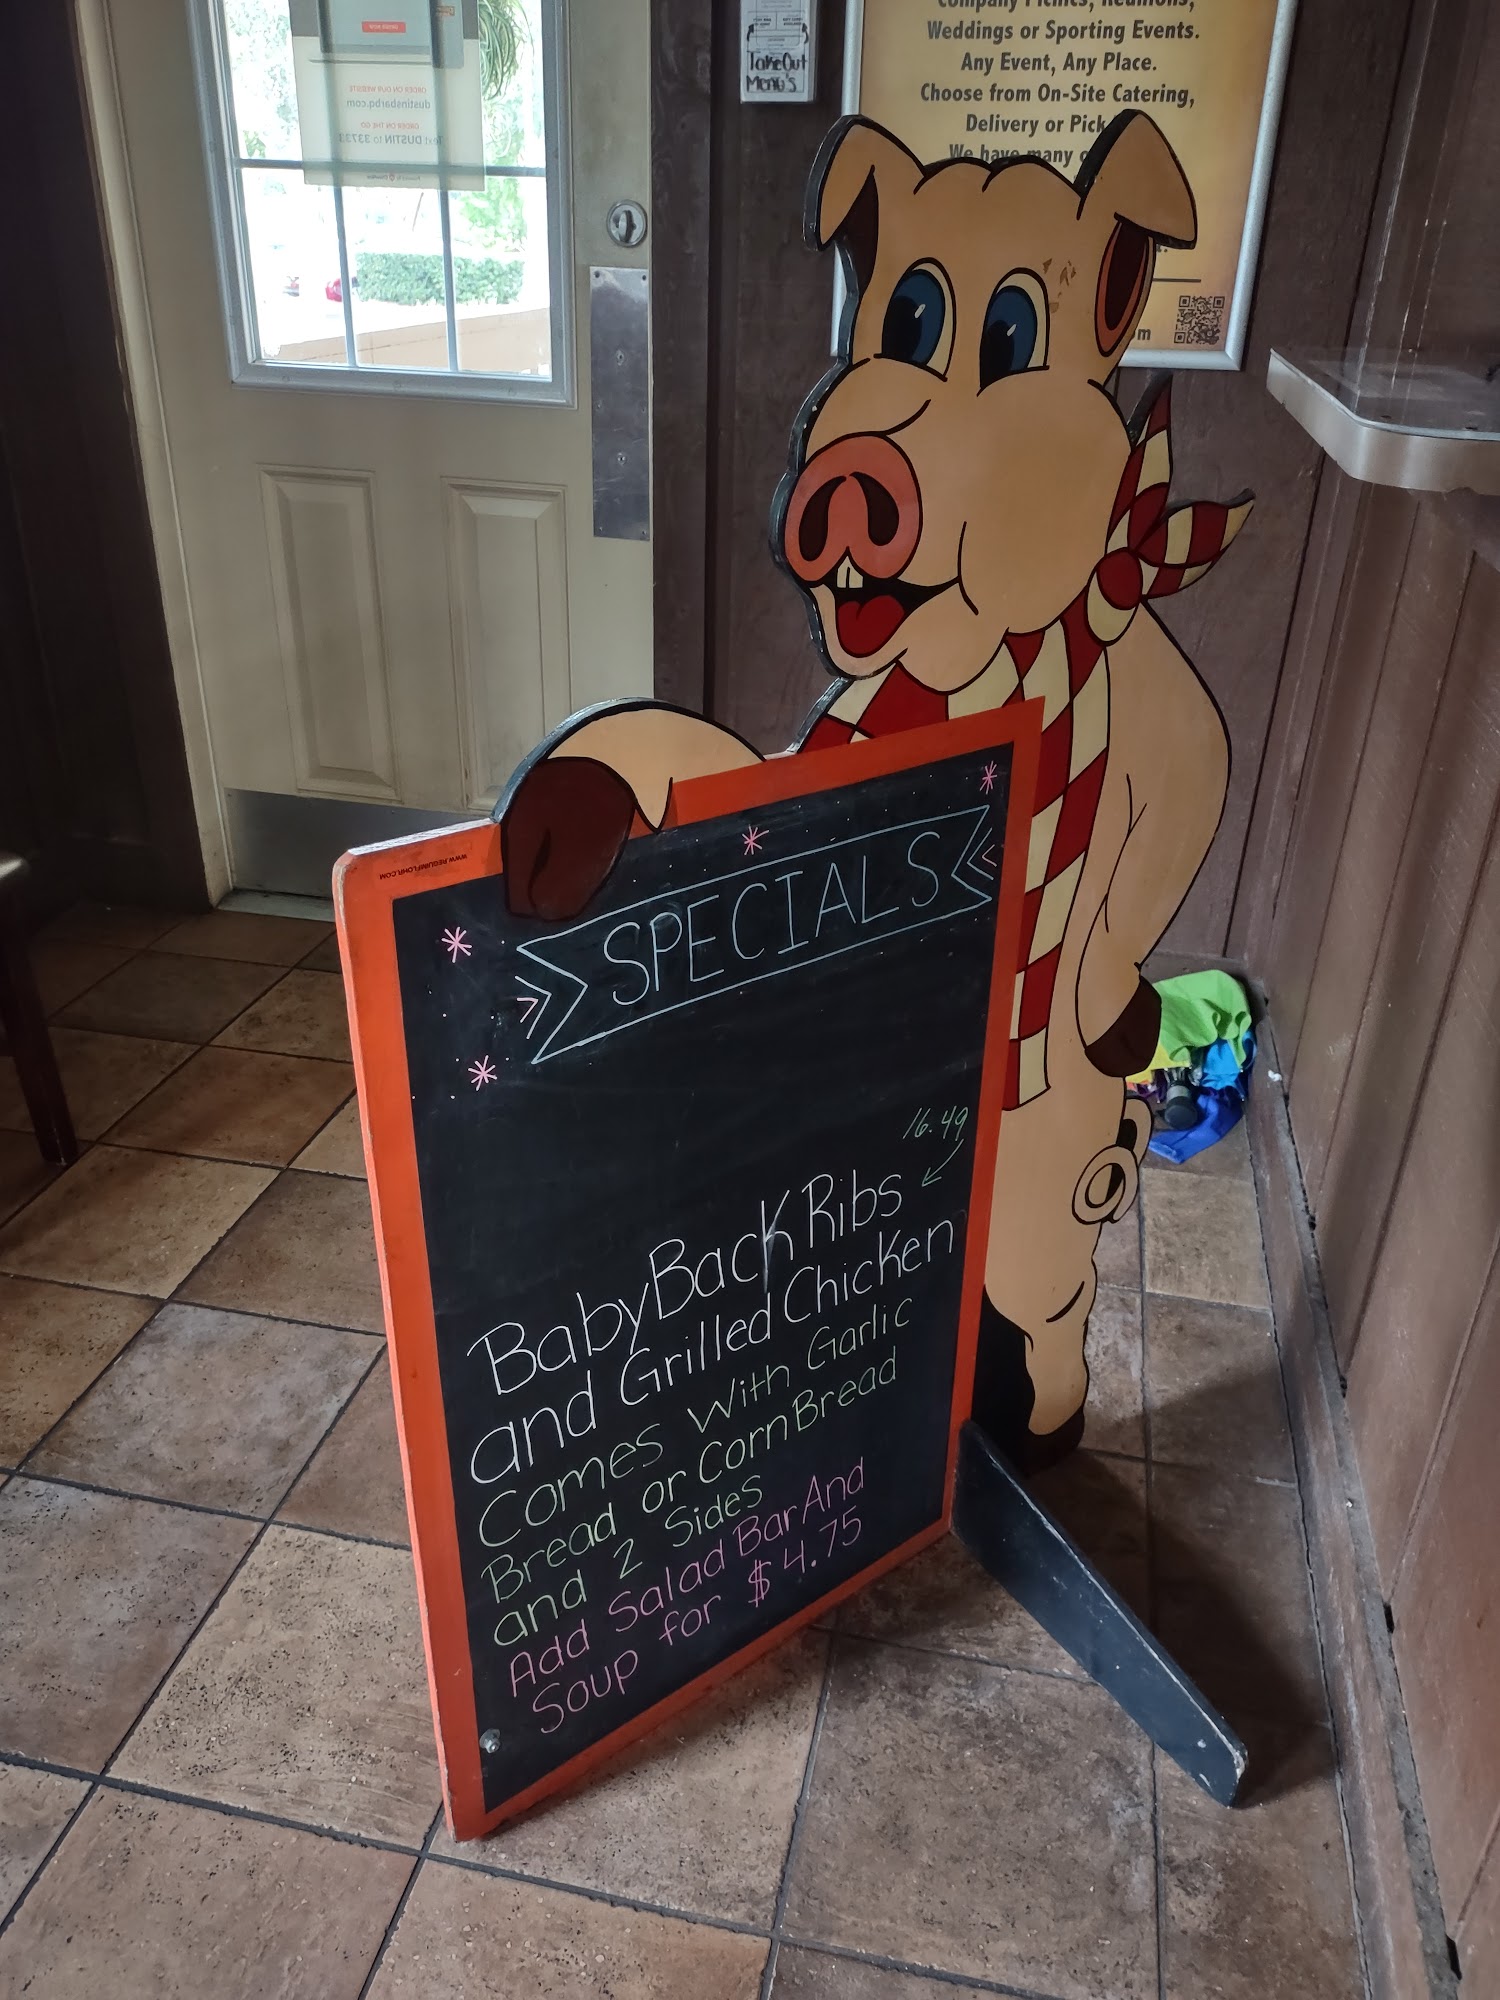 ORDER NOW
ORDER ON OUR WEBSITE
dustinsbarbq.com
ORDER ON THE GO
Text DUSTIN to 33733
TakeOut
Menu's
Company Picnics, Reunions,
Weddings or Sporting Events.
Any Event, Any Place.
Choose from On-Site Catering,
Delivery or Pick
We have many
om
WWW.REGUMFLOHR.COM
SPECIALS
16.49
BabyBack Ribs
and Grilled Chicken
Comes With Garlic
Bread or CornBread
and 2 Sides
Add Salad Bar And
Soup for $4.75